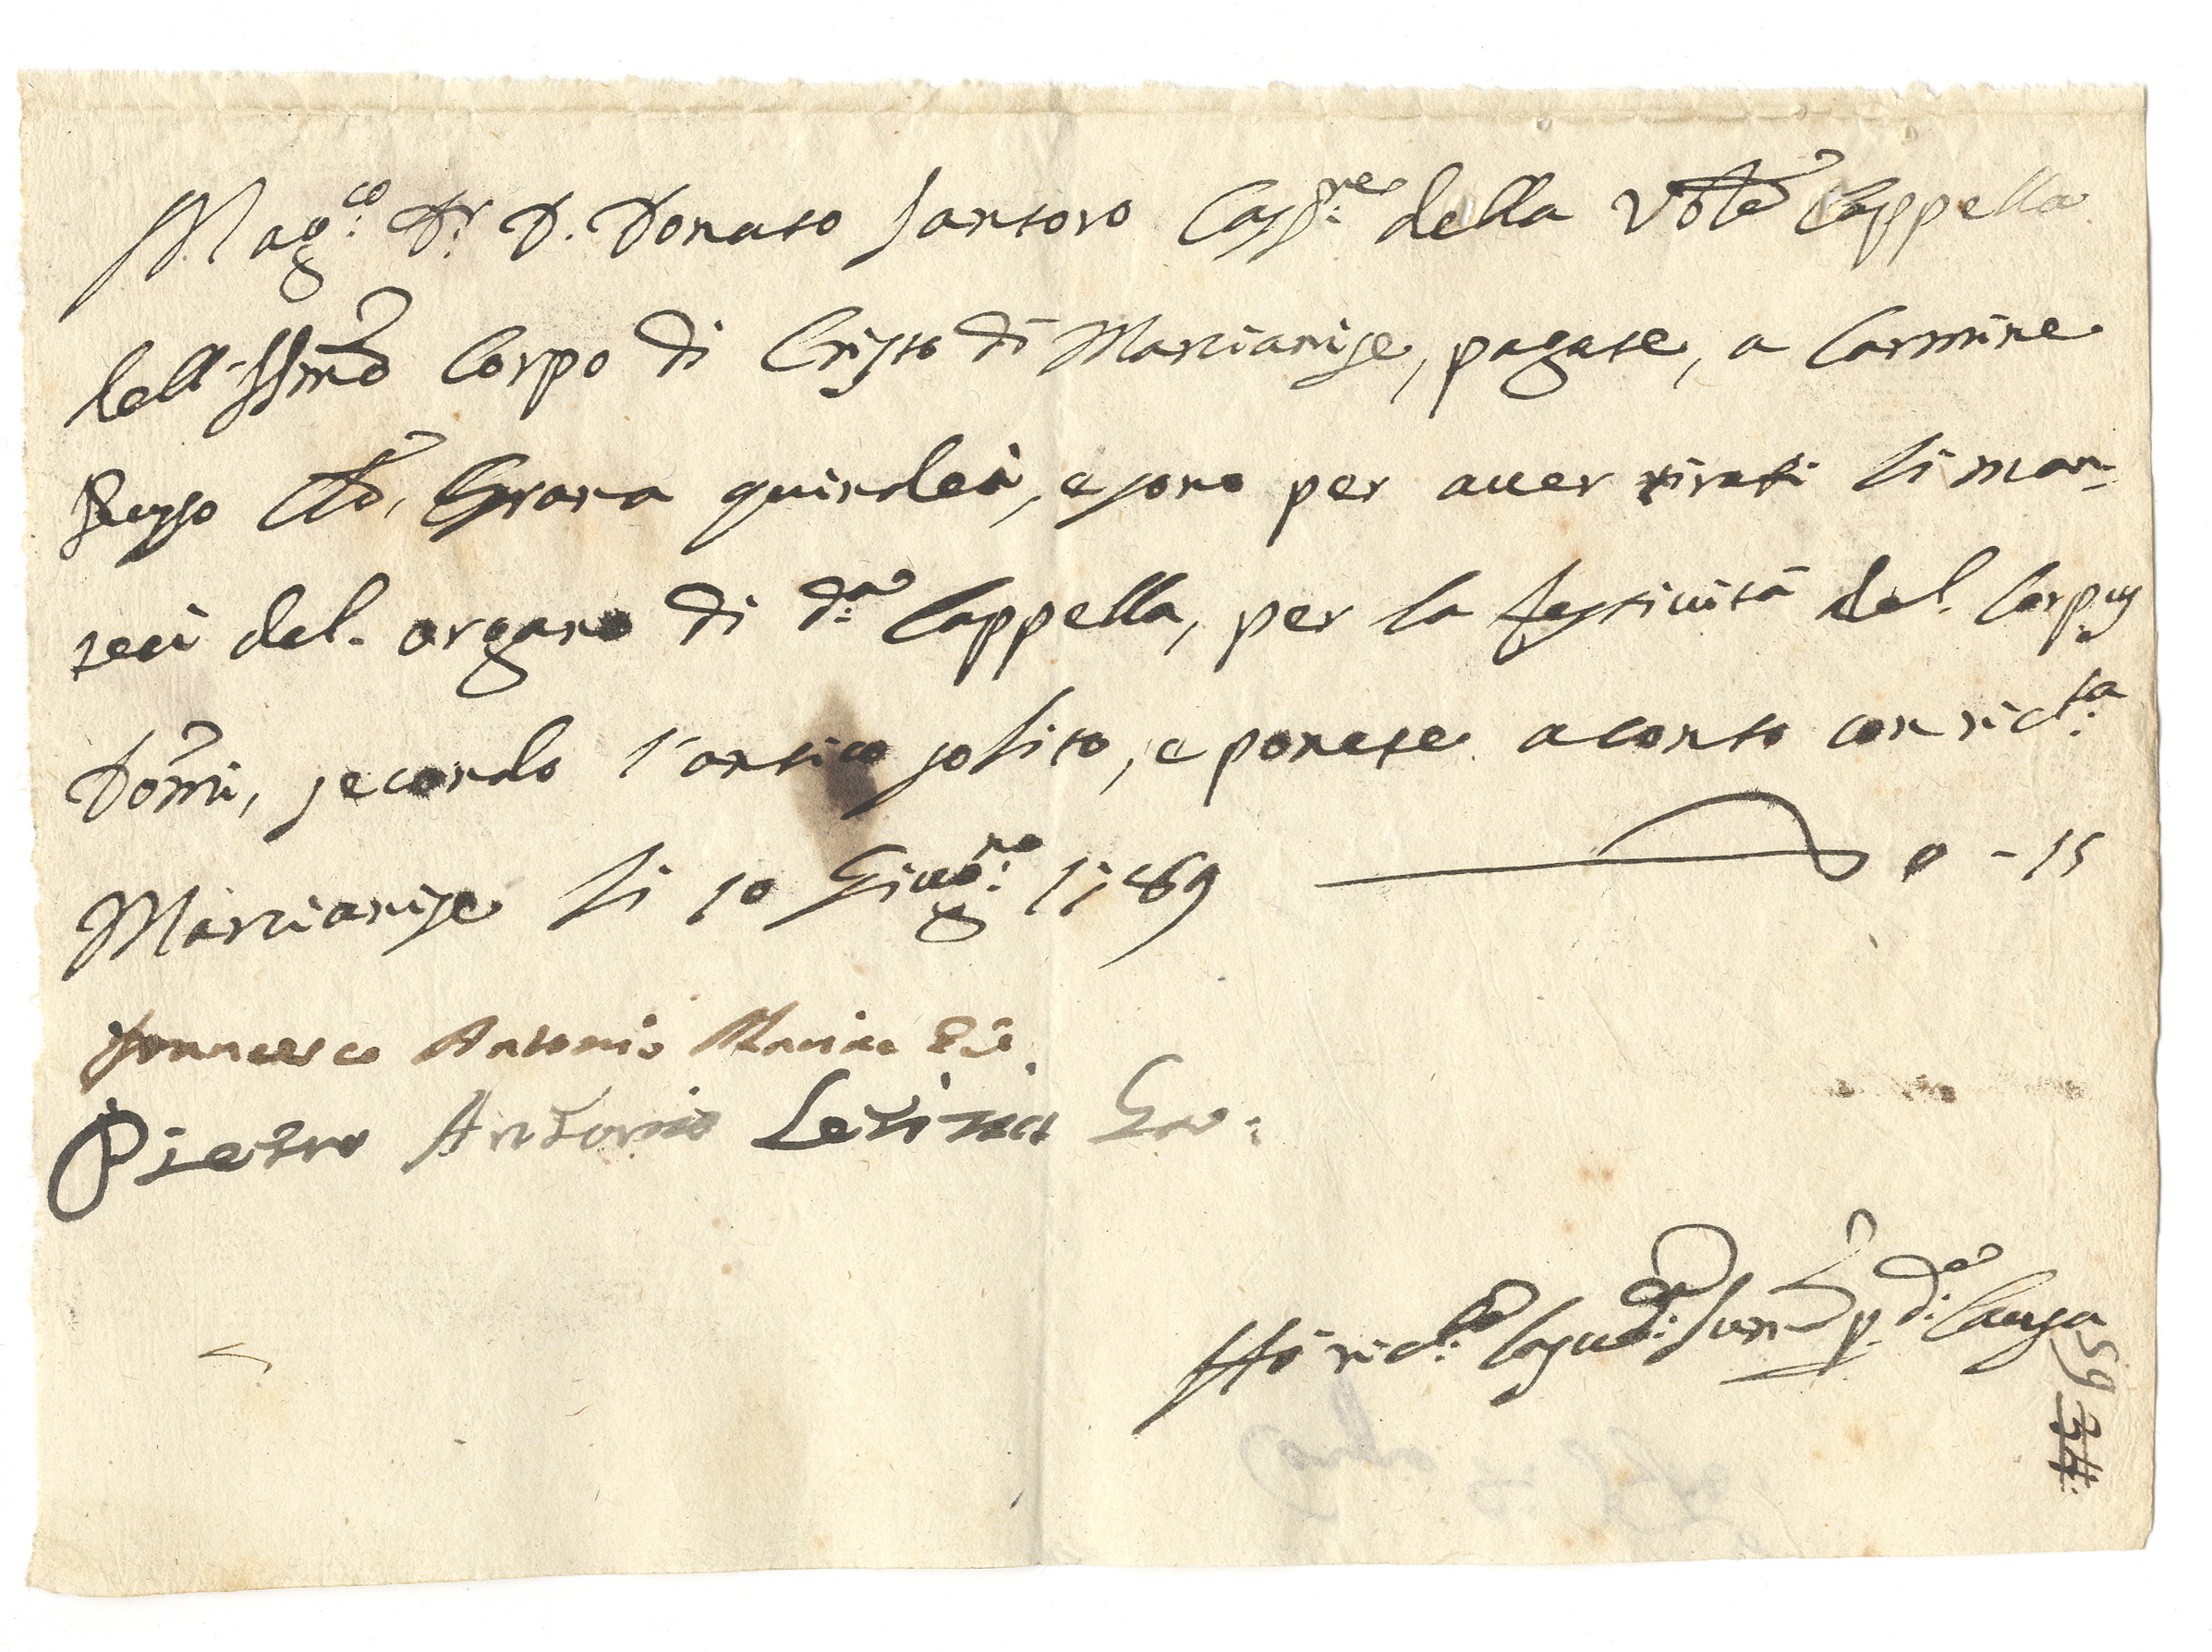 Mag.co Dr. D. Donato Santoro Cass.re della Vble Cappella
dell'SSmo Corpo di Cristo di Marcianise, pagate, a Carmine
Russo Ctō, Grana quindeci, e sono per auer tirati li man-
teci del. organo di d.a Cappella, per la festiuità del. Corpus
Dōmi, secondo l'antico solito, e ponete a conto con ric.ta
Marcianise li 10 Giug.no 1769 0 - 15
Francesco Antonio
Pietro Antonio Letizia Gov:
Hò ric.to la sud.a sum̄a p. d.a Causa
59
34